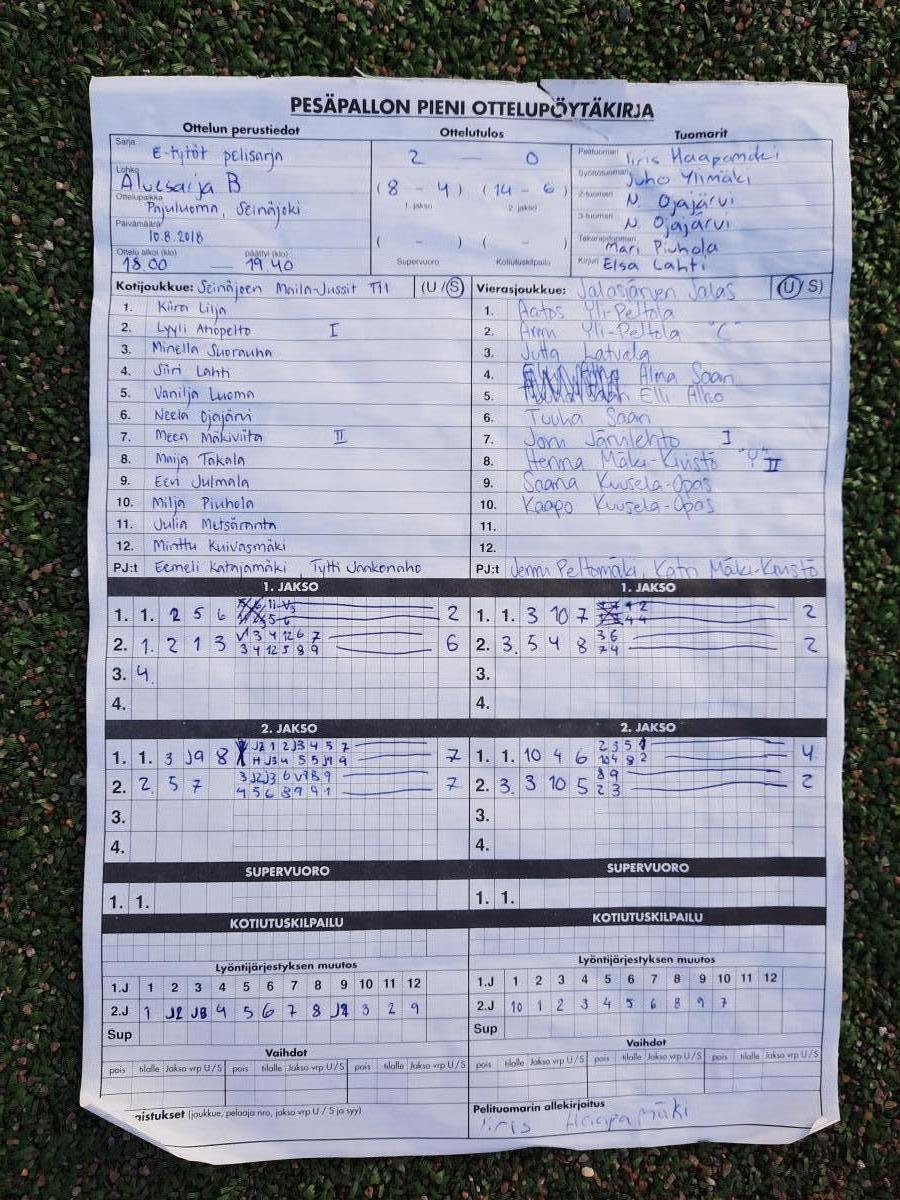 PESÄPALLON PIENI OTTELUPÖYTÄKIRJA
Ottelun perustiedot
Sarja
E-tytöt pelisarja
Lohko
Aluesarja B
Ottelupaikka
Pajuluoma, Seinäjoki
Päivämäärä
10.8.2018
Ottelu alkoi (klo) päättyi (klo)
18.00 — 19.40
Ottelutulos
2 — 0
(8 - 4) (14 - 6)
1. jakso 2. jakso
( - ) ( - )
Supervuoro Kotiutuskilpailu
Tuomarit
Pelituomari Iiris Haapamäki
Syöttötuomari Juho Ylimäki
2-tuomari N. Ojajärvi
3-tuomari N. Ojajärvi
Takarajatuomari Mari Piuhola
Kirjuri Elsa Lahti
Kotijoukkue: Seinäjoen Maila-Jussit T11 (U/S)
1. Kiira Lilja
2. Lyyli Ahopelto I
3. Minella Suorauha
4. Siiri Lahti
5. Vanilja Luoma
6. Neela Ojajärvi
7. Meea Mäkiviita II
8. Maija Takala
9. Eevi Julmala
10. Milja Piuhola
11. Julia Metsäranta
12. Minttu Kuivasmäki
PJ:t Eemeli Katajamäki, Tytti Jaakonaho
Vierasjoukkue: Jalasjärven Jalas (U/S)
1. Aatos Yli-Peltola
2. Armi Yli-Peltola "C"
3. Jutta Latvala
4. Alma Saari
5. Elli Alho
6. Tuuha Saari
7. Joni Järvilehto I
8. Henna Mäki-Kivistö "Y" II
9. Saana Kuusela-Opas
10. Kaapo Kuusela-Opas
11.
12.
PJ:t Jenni Peltomäki, Katri Mäki-Kivistö
1. JAKSO
1. 1. 2 5 6 2
2. 1. 2 1 3 6
3. 4
4.
1. JAKSO
1. 1. 3 10 7 2
2. 3. 5 4 8 3 6 7 4 2
3.
4.
2. JAKSO
1. 1. 3 J9 8 7
2. 2. 5 7 7
3.
4.
2. JAKSO
1. 1. 10 4 6 4
2. 3. 3 10 5 8 9 2 3 2
3.
4.
SUPERVUORO
1. 1.
SUPERVUORO
1. 1.
KOTIUTUSKILPAILU
KOTIUTUSKILPAILU
Lyöntijärjestyksen muutos
1.J 1 2 3 4 5 6 7 8 9 10 11 12
2.J 1 J2 J3 4 5 6 7 8 J9 3 2 9
Sup
Lyöntijärjestyksen muutos
1.J 1 2 3 4 5 6 7 8 9 10 11 12
2.J 10 1 2 3 4 5 6 8 9 7
Sup
Vaihdot
pois tilalle Jakso vrp U/S pois tilalle Jakso vrp U/S pois tilalle Jakso vrp U/S
Vaihdot
pois tilalle Jakso vrp U/S pois tilalle Jakso vrp U/S pois tilalle Jakso vrp U/S
(joukkue, pelaaja nro, jakso vrp U / S ja syy)
Pelituomarin allekirjoitus
Iiris Haapamäki